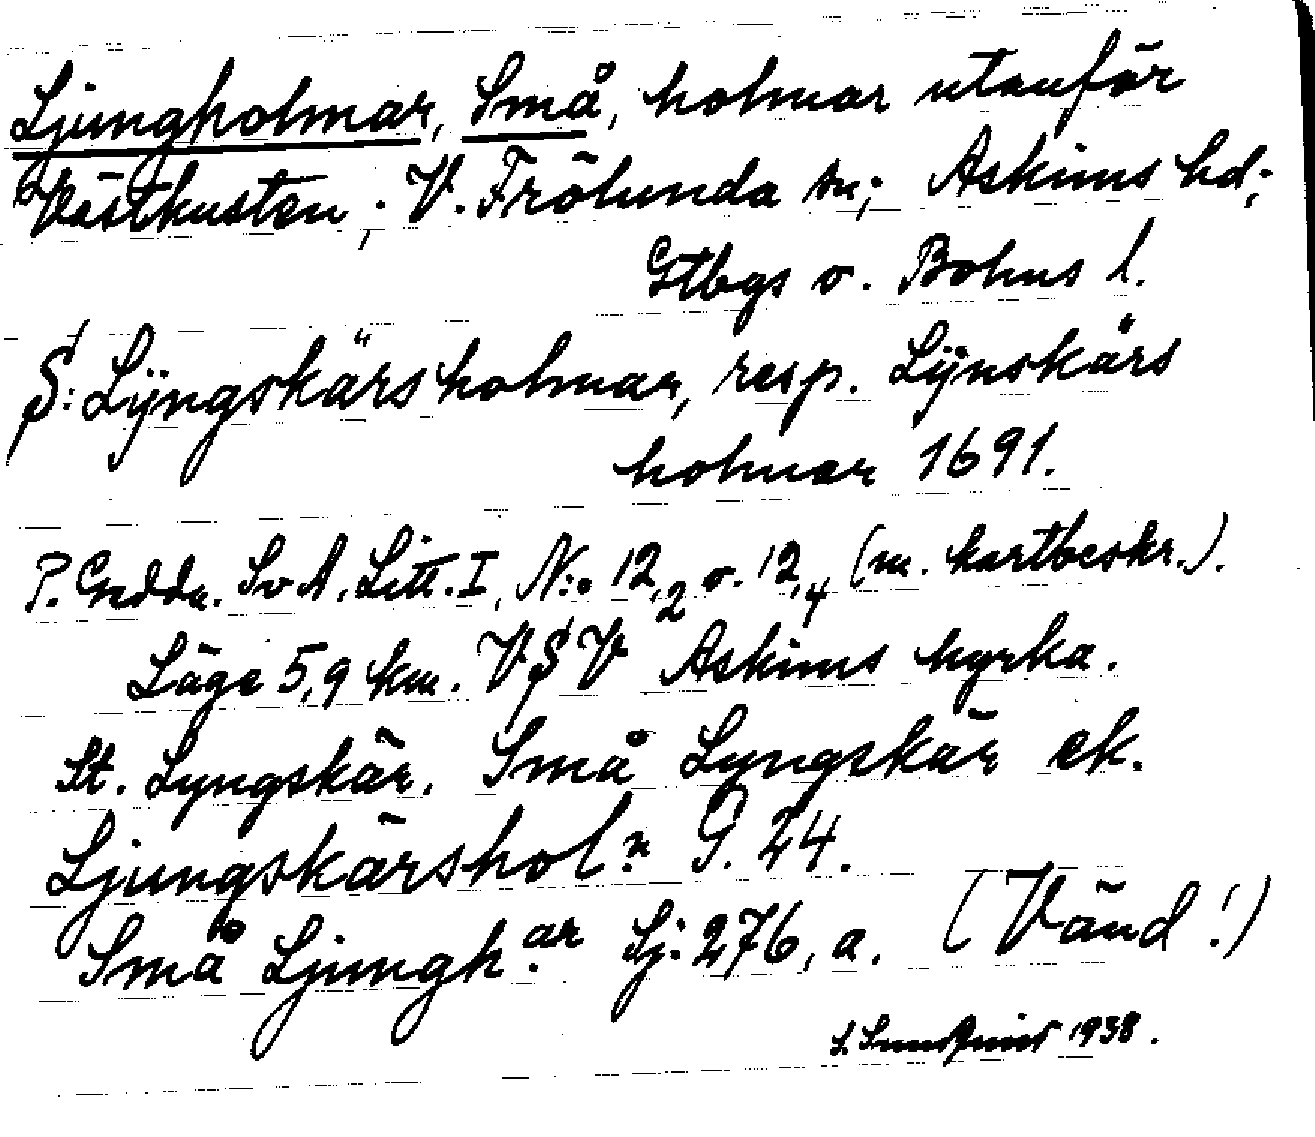 Ljungholmar, Små, holmar utanför
Västkusten; V. Frölunda sn; Askims hd;
Gtbgs o. Bohus l.
S: Lÿngskärs holmar, resp. Lÿnskärs
holmar 1691.
P. Gedda. Sv A. Litt. I, N:o 12,2 o. 12,4 (m. kartbeskr.).
Läge 5,9 km. VSV Askims kyrka.
St. Lyngskär. Små Lyngskär ek.
Ljungskärshol:r G. 24.
Små Ljungh.ar Sj: 276, a. (Vänd!)
1938.